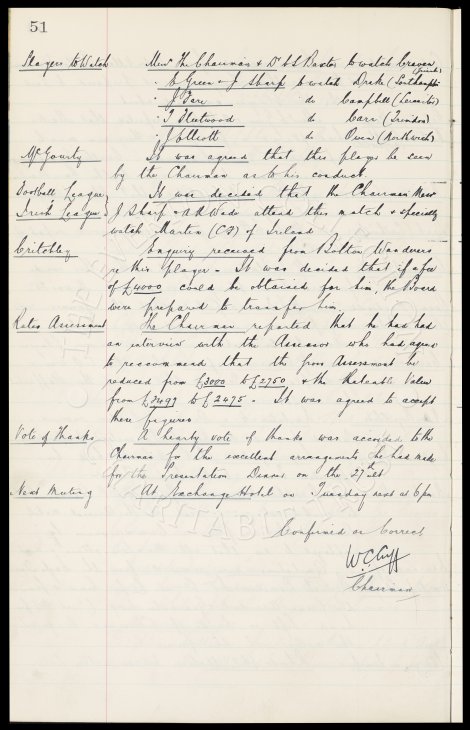 51
Players to Watch Messrs The Chairman & Dr C S Baxter to watch Craven (Grimsby)
" C. Green & J Sharp to watch Drake (Southampton)
" J. Fare do Campbell (Leicester)
" T. Fleetwood do Carr (Swindon)
" J. Elliott do Owen (Northwich)
McGourty It was agreed that this player be seen
by the Chairman as to his conduct.
Football League It was decided that the Chairman Messrs
Irish League J Sharp & A R Wade attend this match & specially
watch Martin (C F) of Ireland
Critchley Enquiry received from Bolton Wanderers
re this player – It was decided that if a fee
of £4000 could be obtained for him, the Board
were prepared to transfer him.
Rates Assessment The Chairman reported that he had had
an interview with the Assessor who had agreed
to recommend that the Gross Assessment be
reduced from £3000 to £2750 & the Rateable Value
from to £2475 – It was agreed to accept
these figures
Vote of Thanks A hearty vote of thanks was accorded to the
Chairman for the excellent arrangements he had made
for the Presentation Dinner on the 27th
Next Meeting At Exchange Hotel on Tuesday next at 6pm
Confirmed as Correct
W.C. Cuff
Chairman